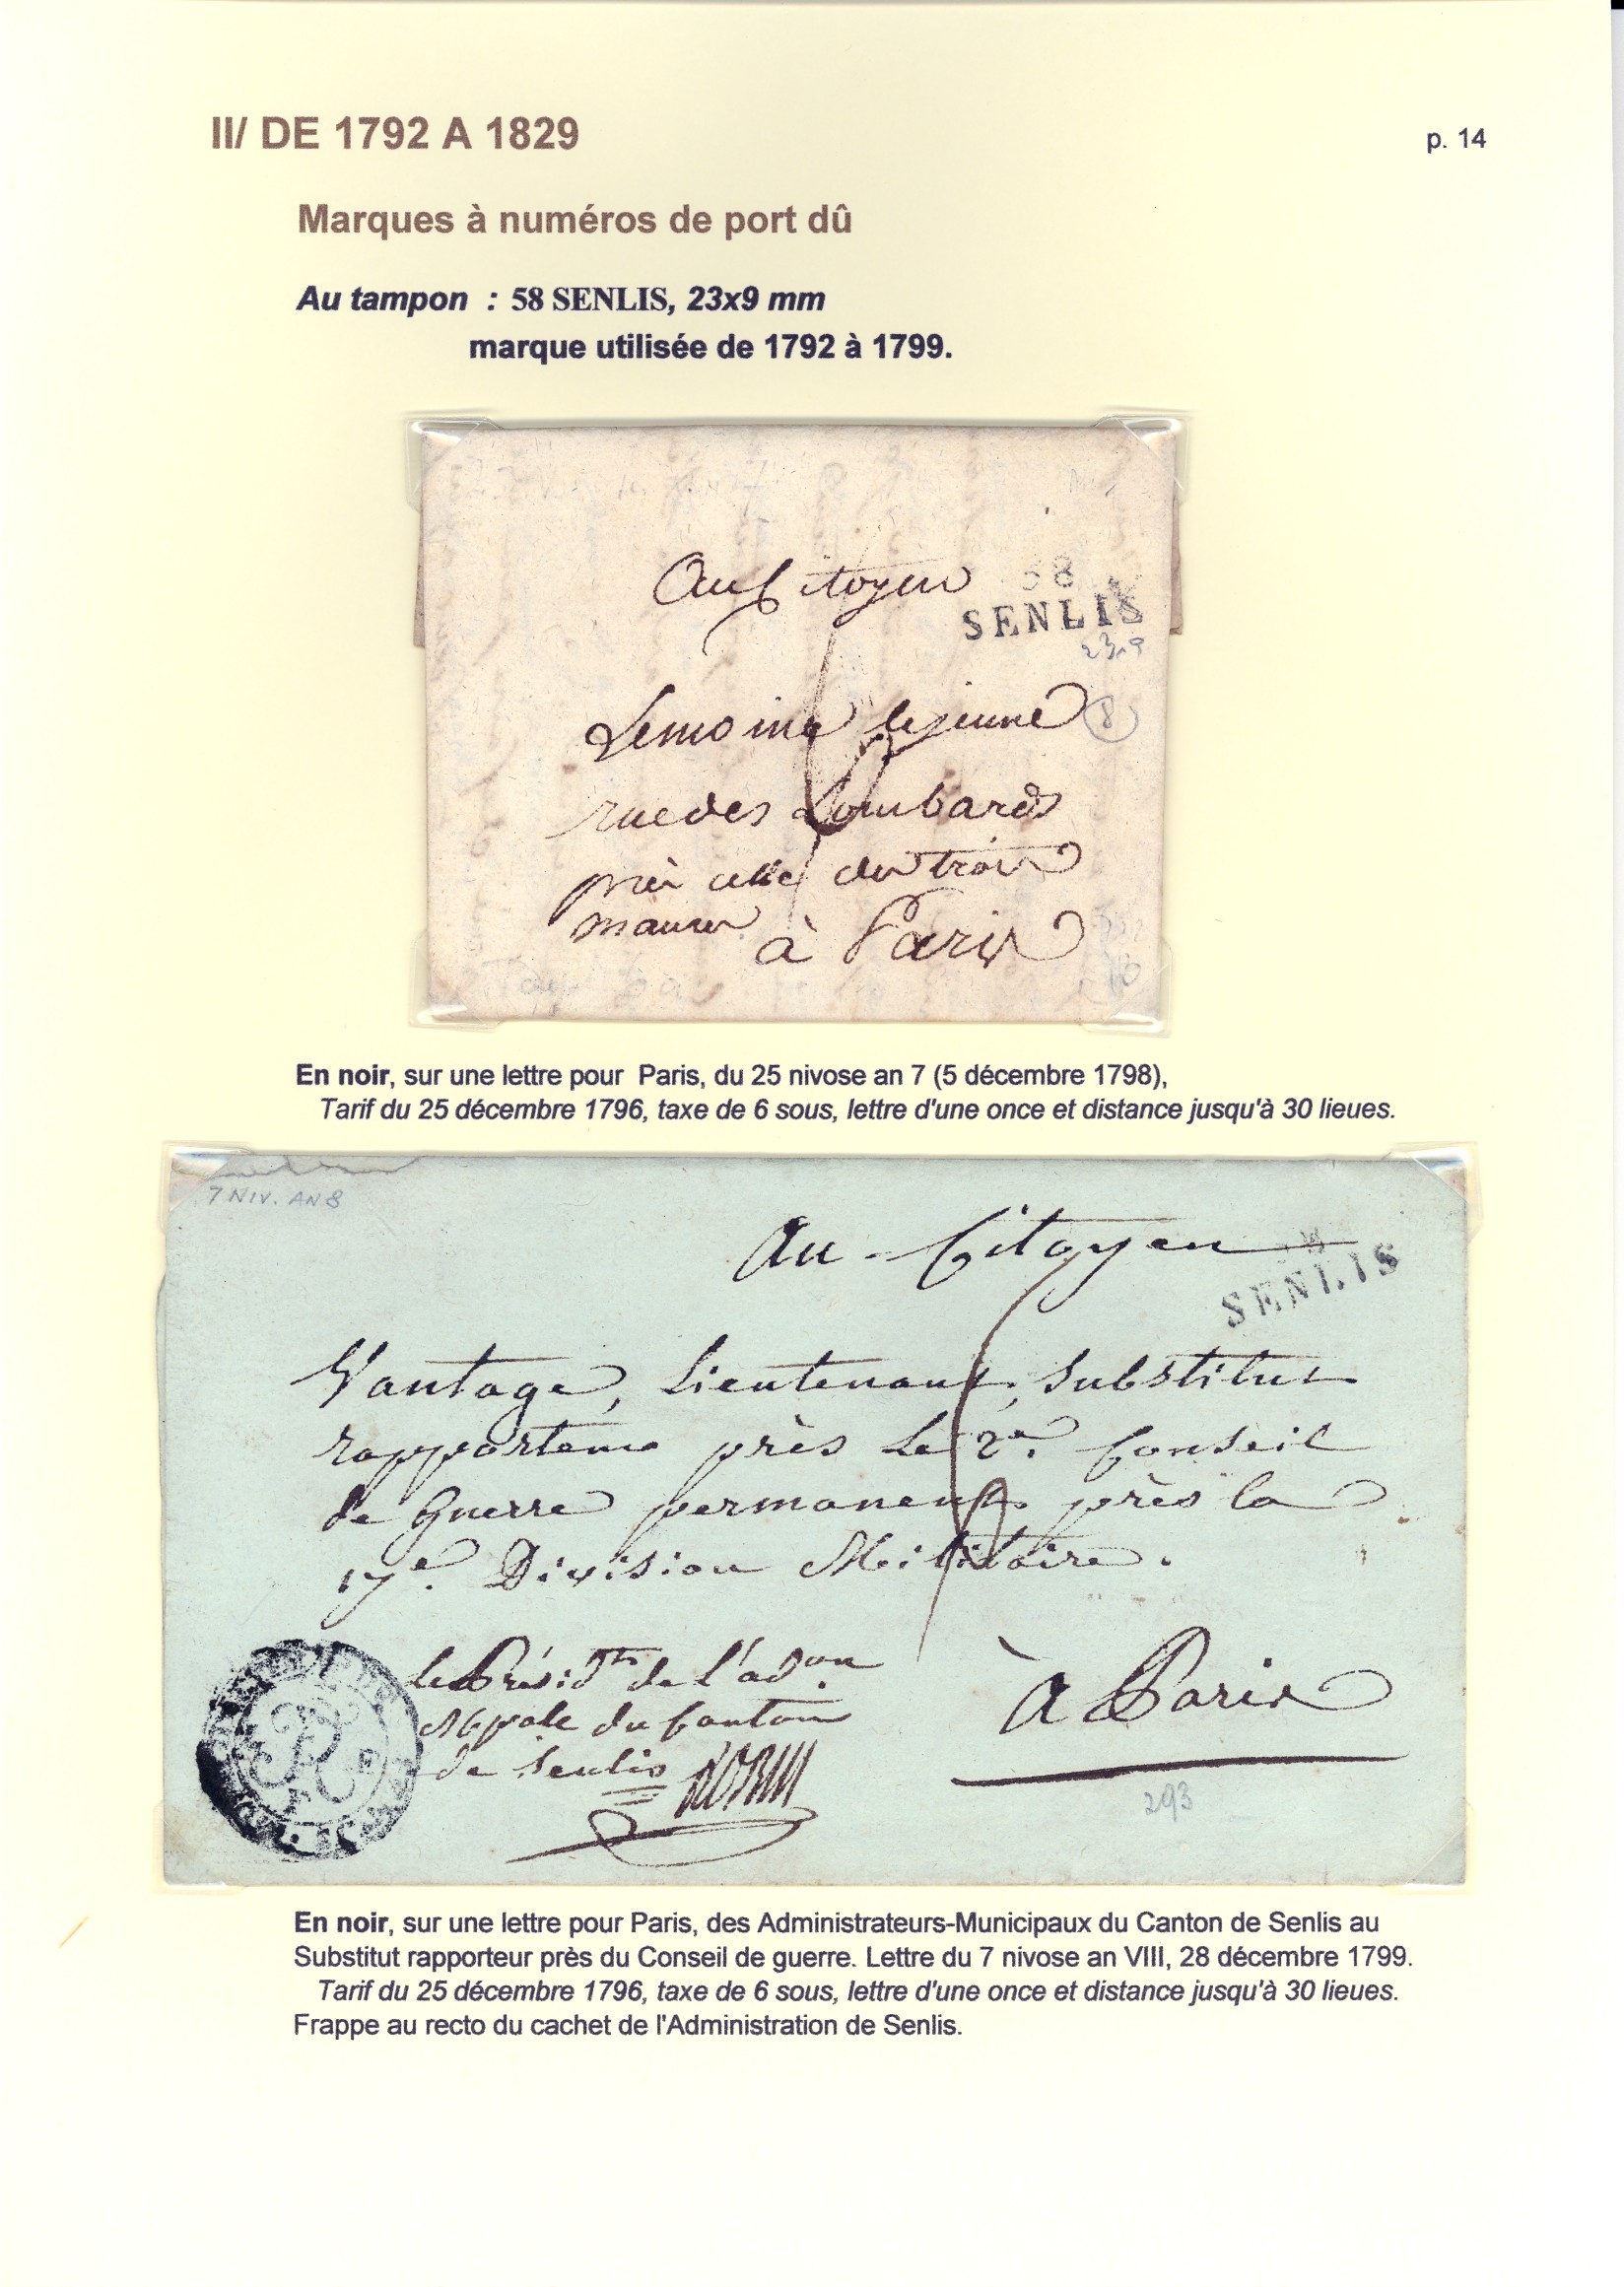 II/ DE 1792 A 1829
p. 14
Marques à numéros de port dû
Au tampon : 58 SENLIS, 23x9 mm
marque utilisée de 1792 à 1799.
Au Citoyen
58
SENLIS
23x9
Lemoine lejeune
8
rue des Lombards
près celle des trois
maures
à Paris
En noir, sur une lettre pour Paris, du 25 nivose an 7 (5 décembre 1798),
Tarif du 25 décembre 1796, taxe de 6 sous, lettre d'une once et distance jusqu'à 30 lieues.
7 NIV. AN 8
Au Citoyen
SENLIS
Vantage, Lieutenant, Substitut
rapporteur près le 2e. Conseil
de Guerre permanent près la
17e. Division Militaire.
le Présidt de l'adon
Mpale du Canton
de Senlis
à Paris
293
En noir, sur une lettre pour Paris, des Administrateurs-Municipaux du Canton de Senlis au
Substitut rapporteur près du Conseil de guerre. Lettre du 7 nivose an VIII, 28 décembre 1799.
Tarif du 25 décembre 1796, taxe de 6 sous, lettre d'une once et distance jusqu'à 30 lieues.
Frappe au recto du cachet de l'Administration de Senlis.